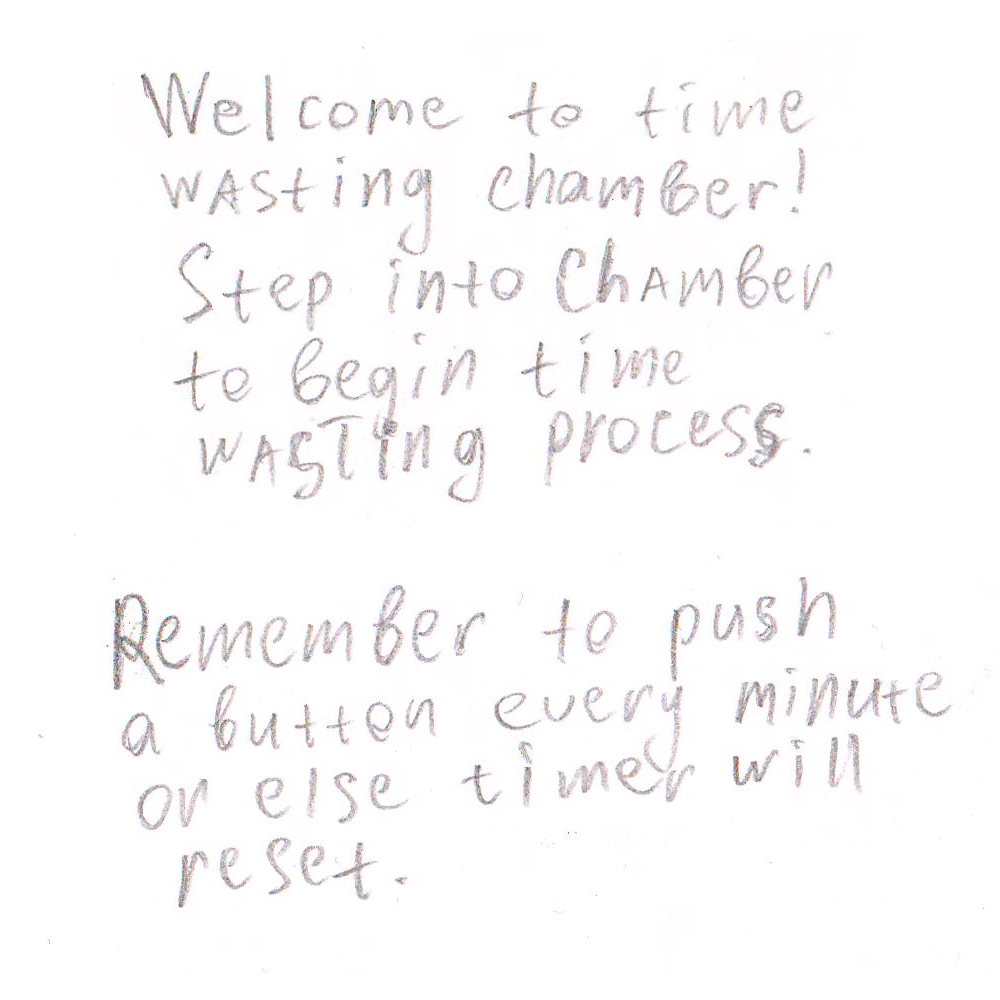 Welcome to time
wasting chamber!
Step into Chamber
to begin time
wasting process.
Remember to push
a button every minute
or else timer will
reset.